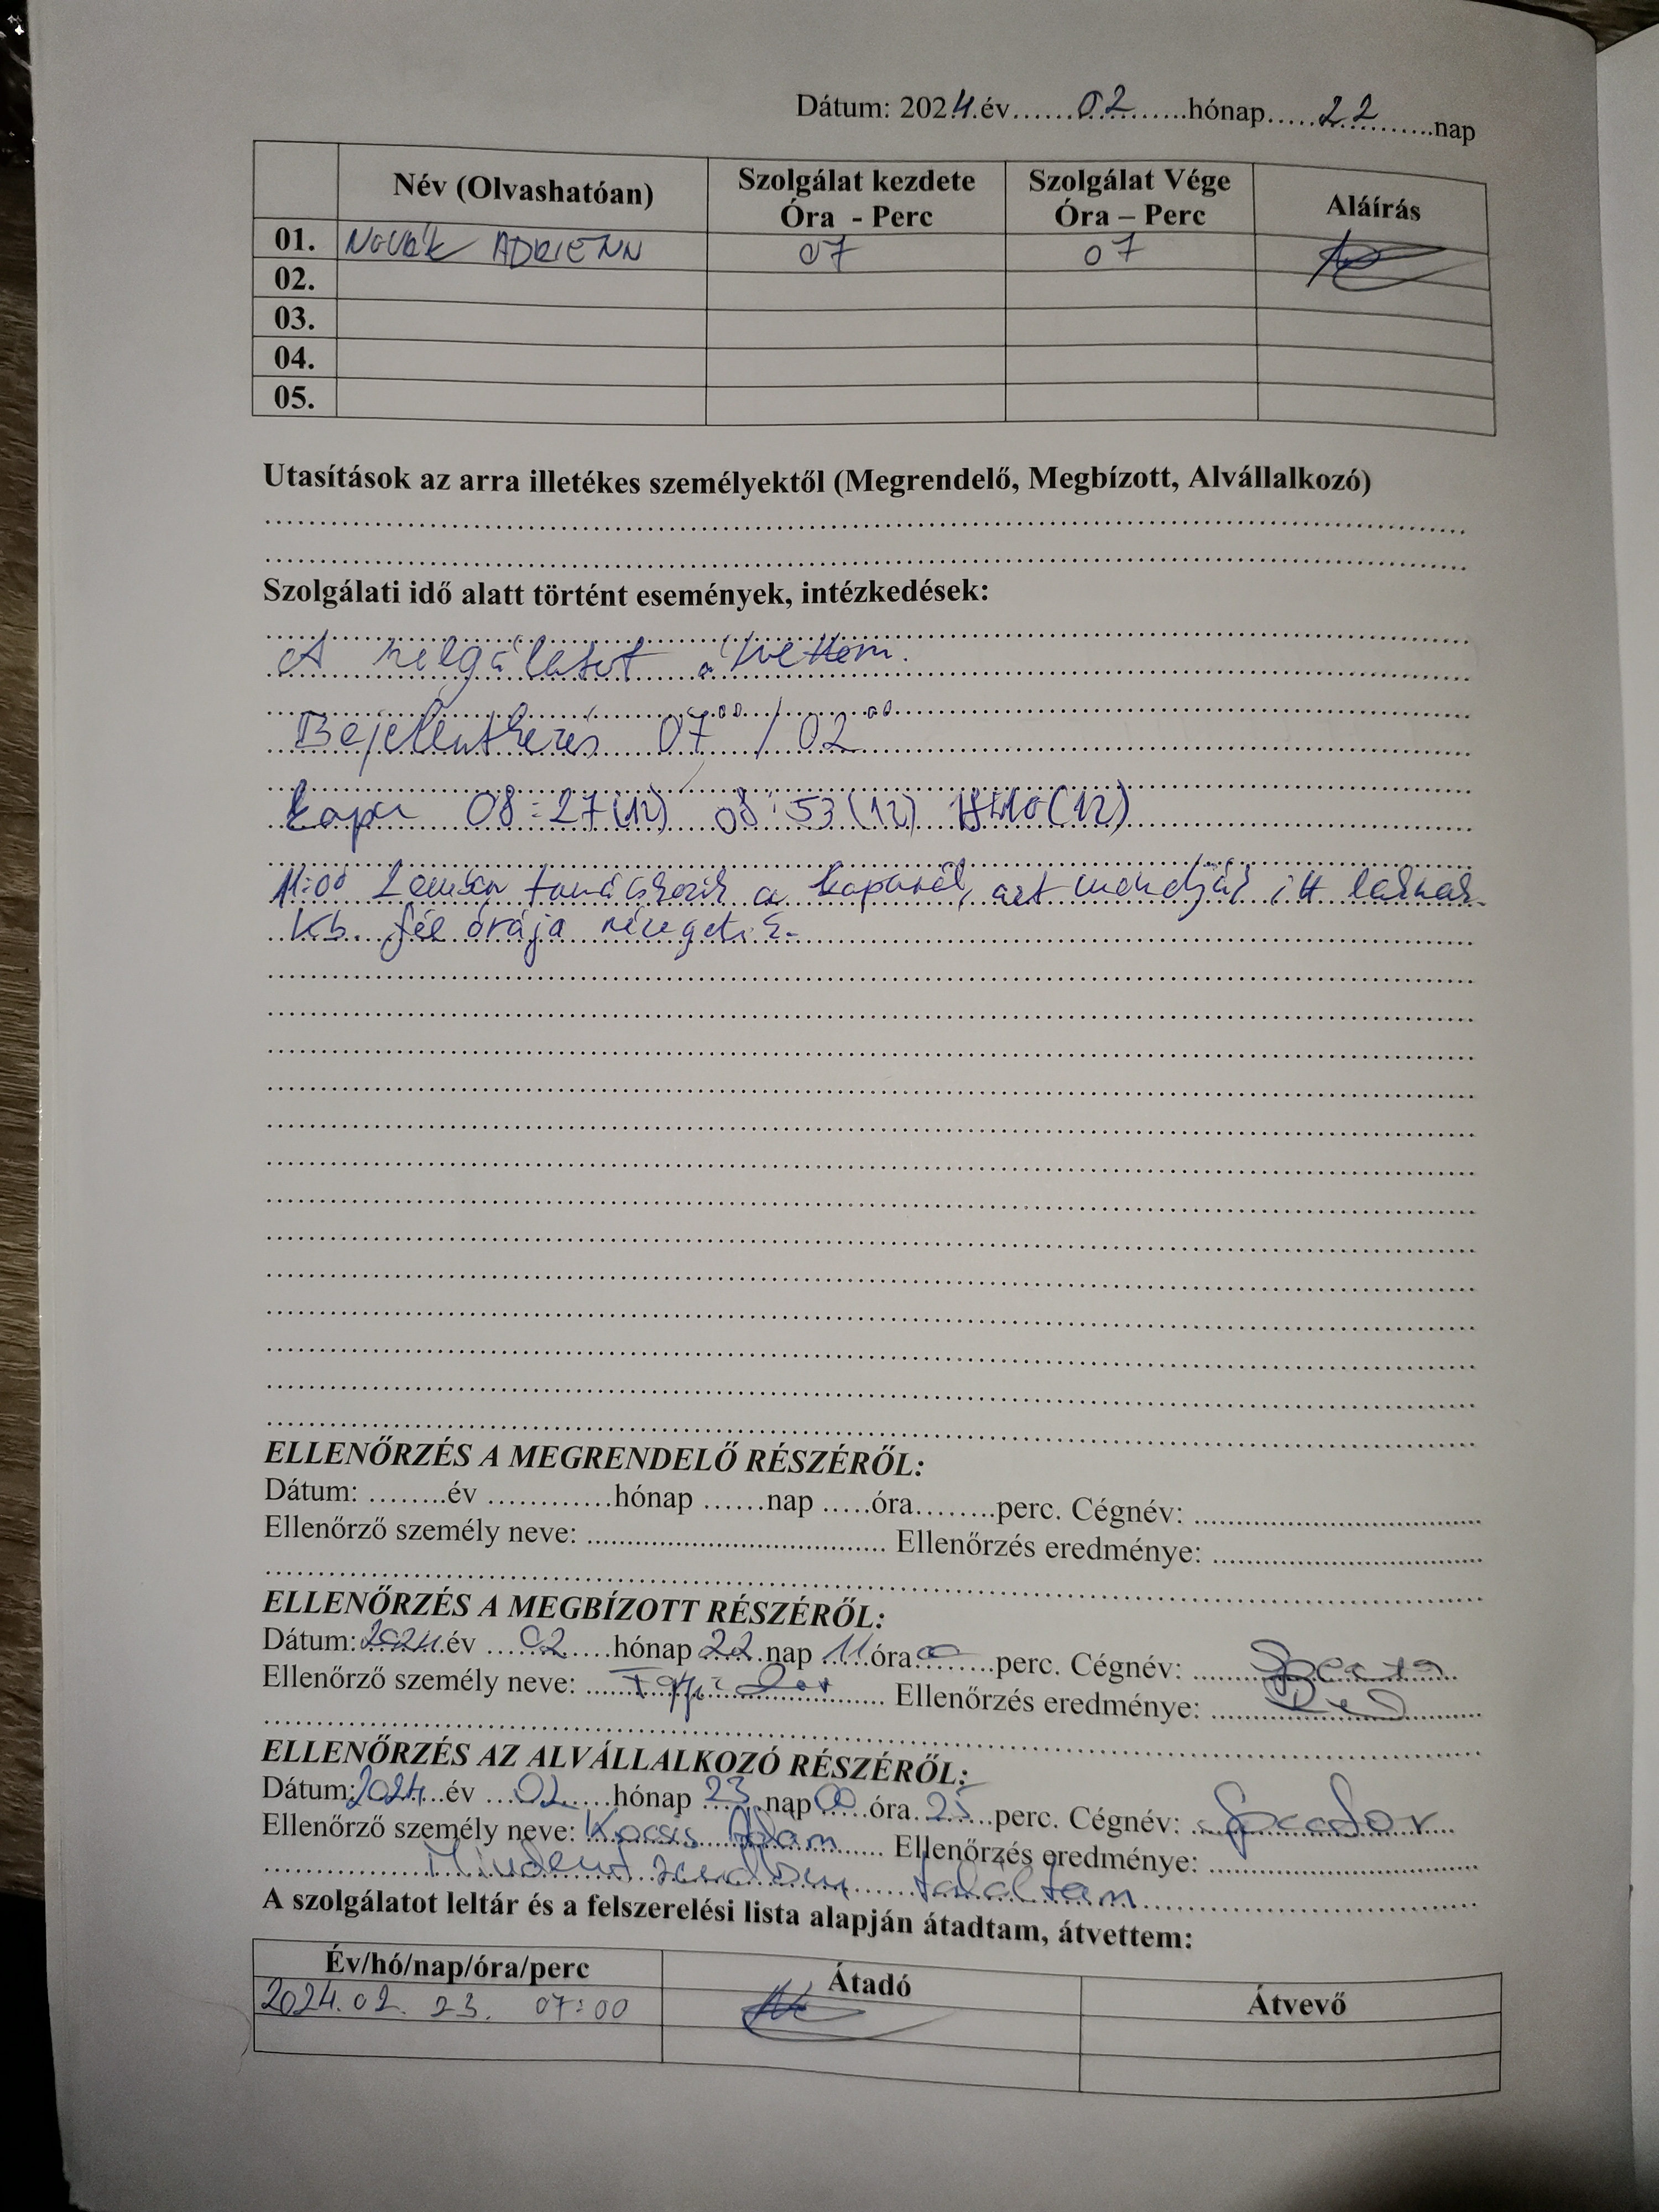 Dátum: 2024.év......02.........hónap.....22..........nap
Név (Olvashatóan) Szolgálat kezdete Óra - Perc Szolgálat Vége Óra – Perc Aláírás
01. NOVÁK ADRIENN 07 07
02.
03.
04.
05.
Utasítások az arra illetékes személyektől (Megrendelő, Megbízott, Alvállalkozó)
Szolgálati idő alatt történt események, intézkedések:
A szolgálatot átvettem.
Bejelentkezés 07⁰⁰ / 02⁰⁰
Kapu 08:27(12) 08:53(12)
11:00 a kapunál, azt mondják itt laknak.
Kb. fél órája nézegetik.
ELLENŐRZÉS A MEGRENDELŐ RÉSZÉRŐL:
Dátum: ........év ............hónap ......nap .....óra........perc. Cégnév: ........................................
Ellenőrző személy neve: .................................... Ellenőrzés eredménye: .................................
ELLENŐRZÉS A MEGBÍZOTT RÉSZÉRŐL:
Dátum: 2024.év ....02....hónap 22.nap 11óra 00 perc. Cégnév:
Ellenőrző személy neve: Ellenőrzés eredménye:
ELLENŐRZÉS AZ ALVÁLLALKOZÓ RÉSZÉRŐL:
Dátum: 2024...év ...02...hónap 23 nap 00 óra 25 perc. Cégnév:
Ellenőrző személy neve: Kocsis Ádám Ellenőrzés eredménye:
Mindent rendben találtam
A szolgálatot leltár és a felszerelési lista alapján átadtam, átvettem:
Év/hó/nap/óra/perc Átadó Átvevő
2024.02. 23. 07:00